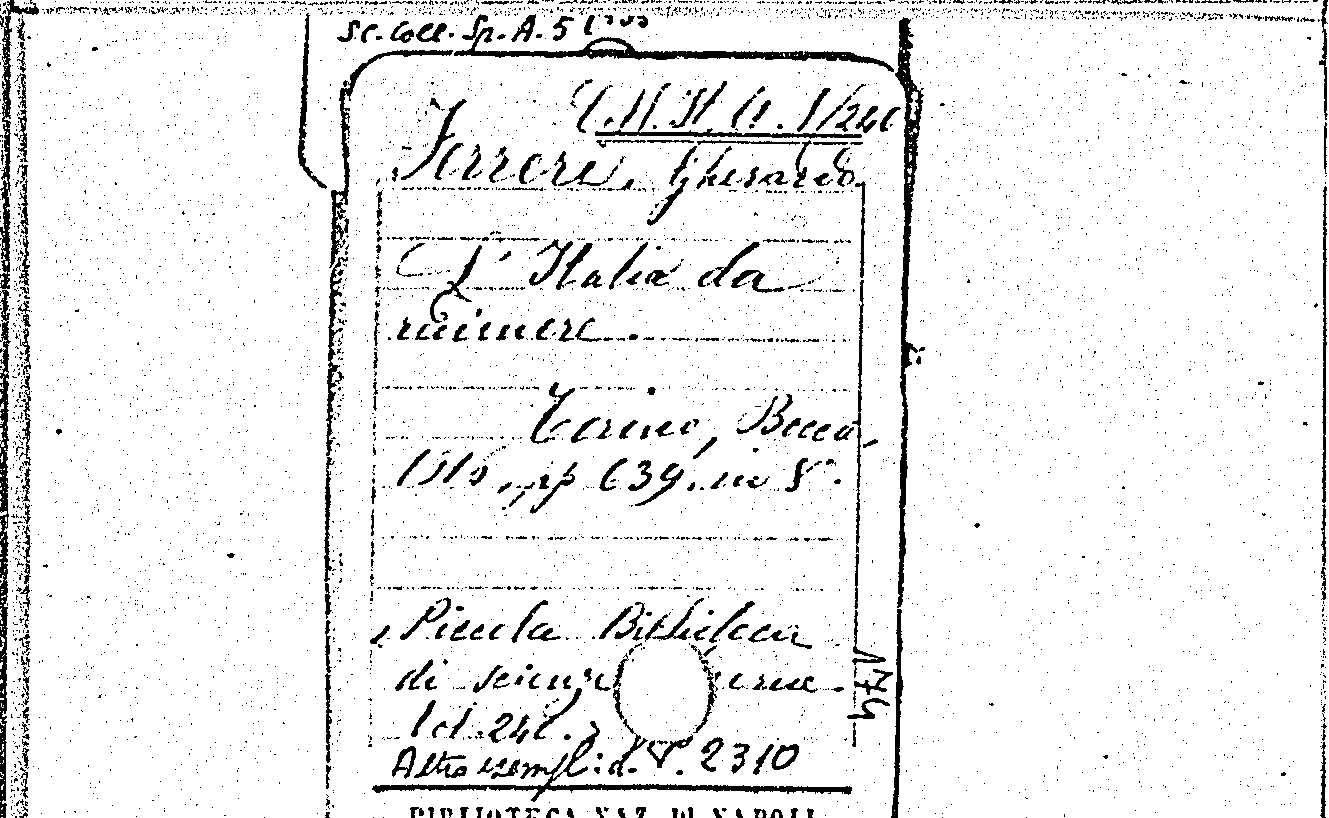 Sc. Coll. Sp. A. 5
Ferreri, Gherardo.
L'Italia da
redimere.
Torino, Bocca,
pp 639. in 8°.
Piccola Biblioteca
di scienze
Vol. 240.
Altro esempl: d. V. 2310
BIBLIOTECA NAZ. DI NAPOLI